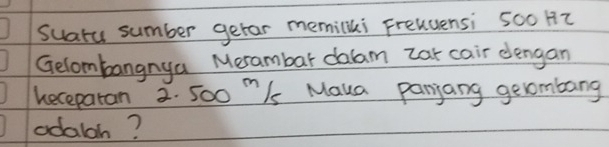 Suatu sumber getar memiliki Frekuensi 500 HZ
Gelombangnya Merambat dalam zat cair dengan
kecepatan 2.500 m/s Maka panjang gelombang
adalah ?